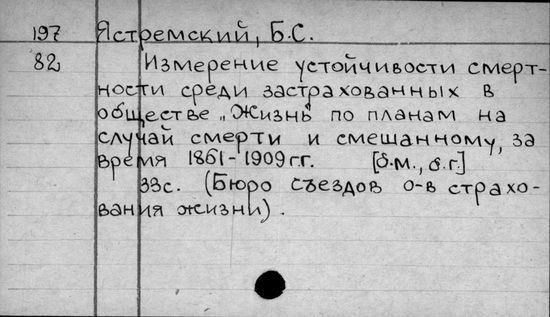 197 Ястремский, Б.С.
82 Измерение устойчивости смерт-
ности среди застрахованных в
обществе „Жизнь" по планам на
случай смерти и смешанному, за
время 1861-1909 г.г. [б.м., б.г.]
33с. (Бюро съездов о-в страхо-
вания жизни).